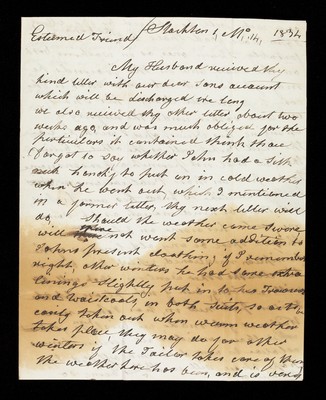 Esteemed Friend / Stockton 1, Mo. 14, 1834
My Husband received thy
kind letter with our dear sons account
which will be discharged ere long
we also received thy other letter, about two
weeks ago, and was much obliged for the
perticulars it contained think thou
forgot to say whether John had a Silk
neck hand'f to put on in cold weather
when he went out, which I mentioned
in a former letter, thy next letter will
do, Should the weather come severe
will not want some addition to
Johns present cloathing, if I remember
right, other winters he had some
linings Slightly put in to his Trousers
and Waistcoats, in both suits, so as to be
easily taken out when warm weather
takes place, they may do for other
winters if the Tailor takes care of them
the weather here has been, and is very